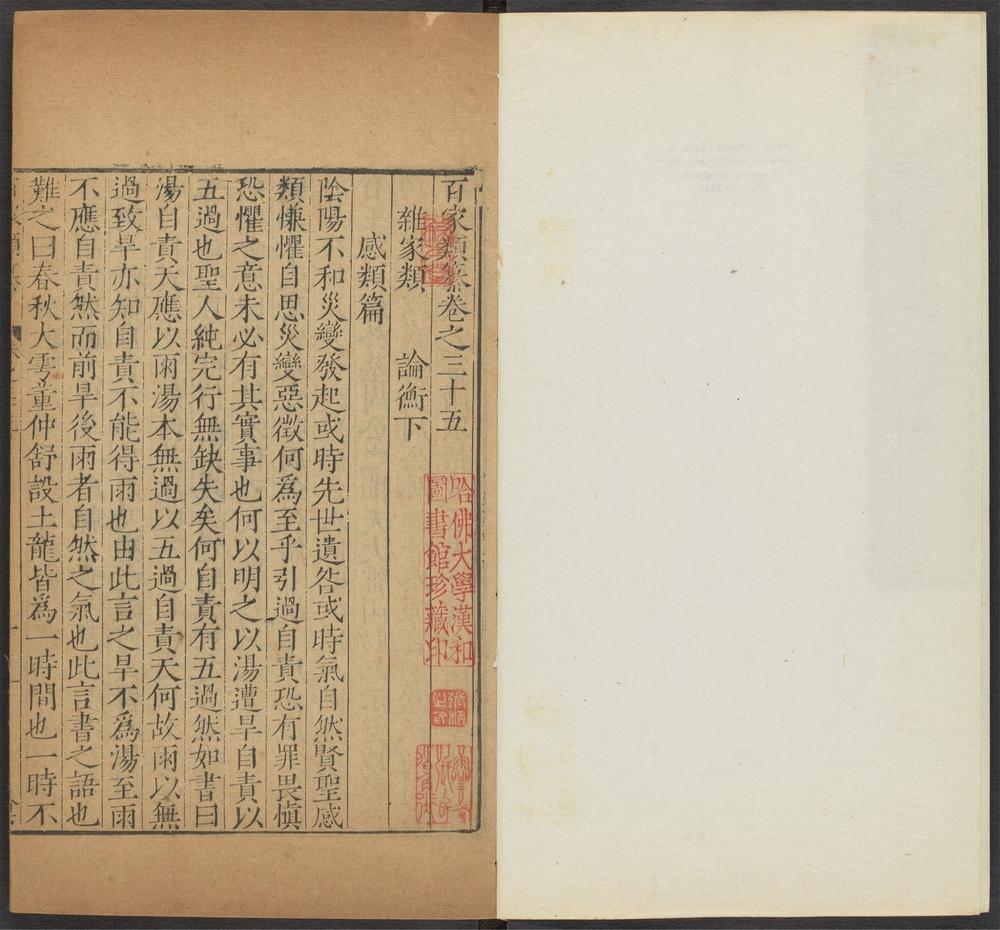 百家類纂卷之三十五
雜家類　論衡下
感類篇
陰陽不和災變發起或時先世遺咎或時氣自然賢聖感
類慊懼自思災變惡徵何爲至乎引過自責恐有罪畏慎
恐懼之意未必有其實事也何以明之以湯遭旱自責以
五過也聖人純完行無缺失矣何自責有五過然如書曰
湯自責天應以雨湯本無過以五過自責天何故雨以無
過致旱亦知自責不能得雨也由此言之旱不爲湯至雨
不應自責然而前旱後雨者自然之氣也此言書之語也
難之曰春秋大雩董仲舒設土龍皆爲一時間也一時不
哈佛大學漢和
圖書館珍藏印